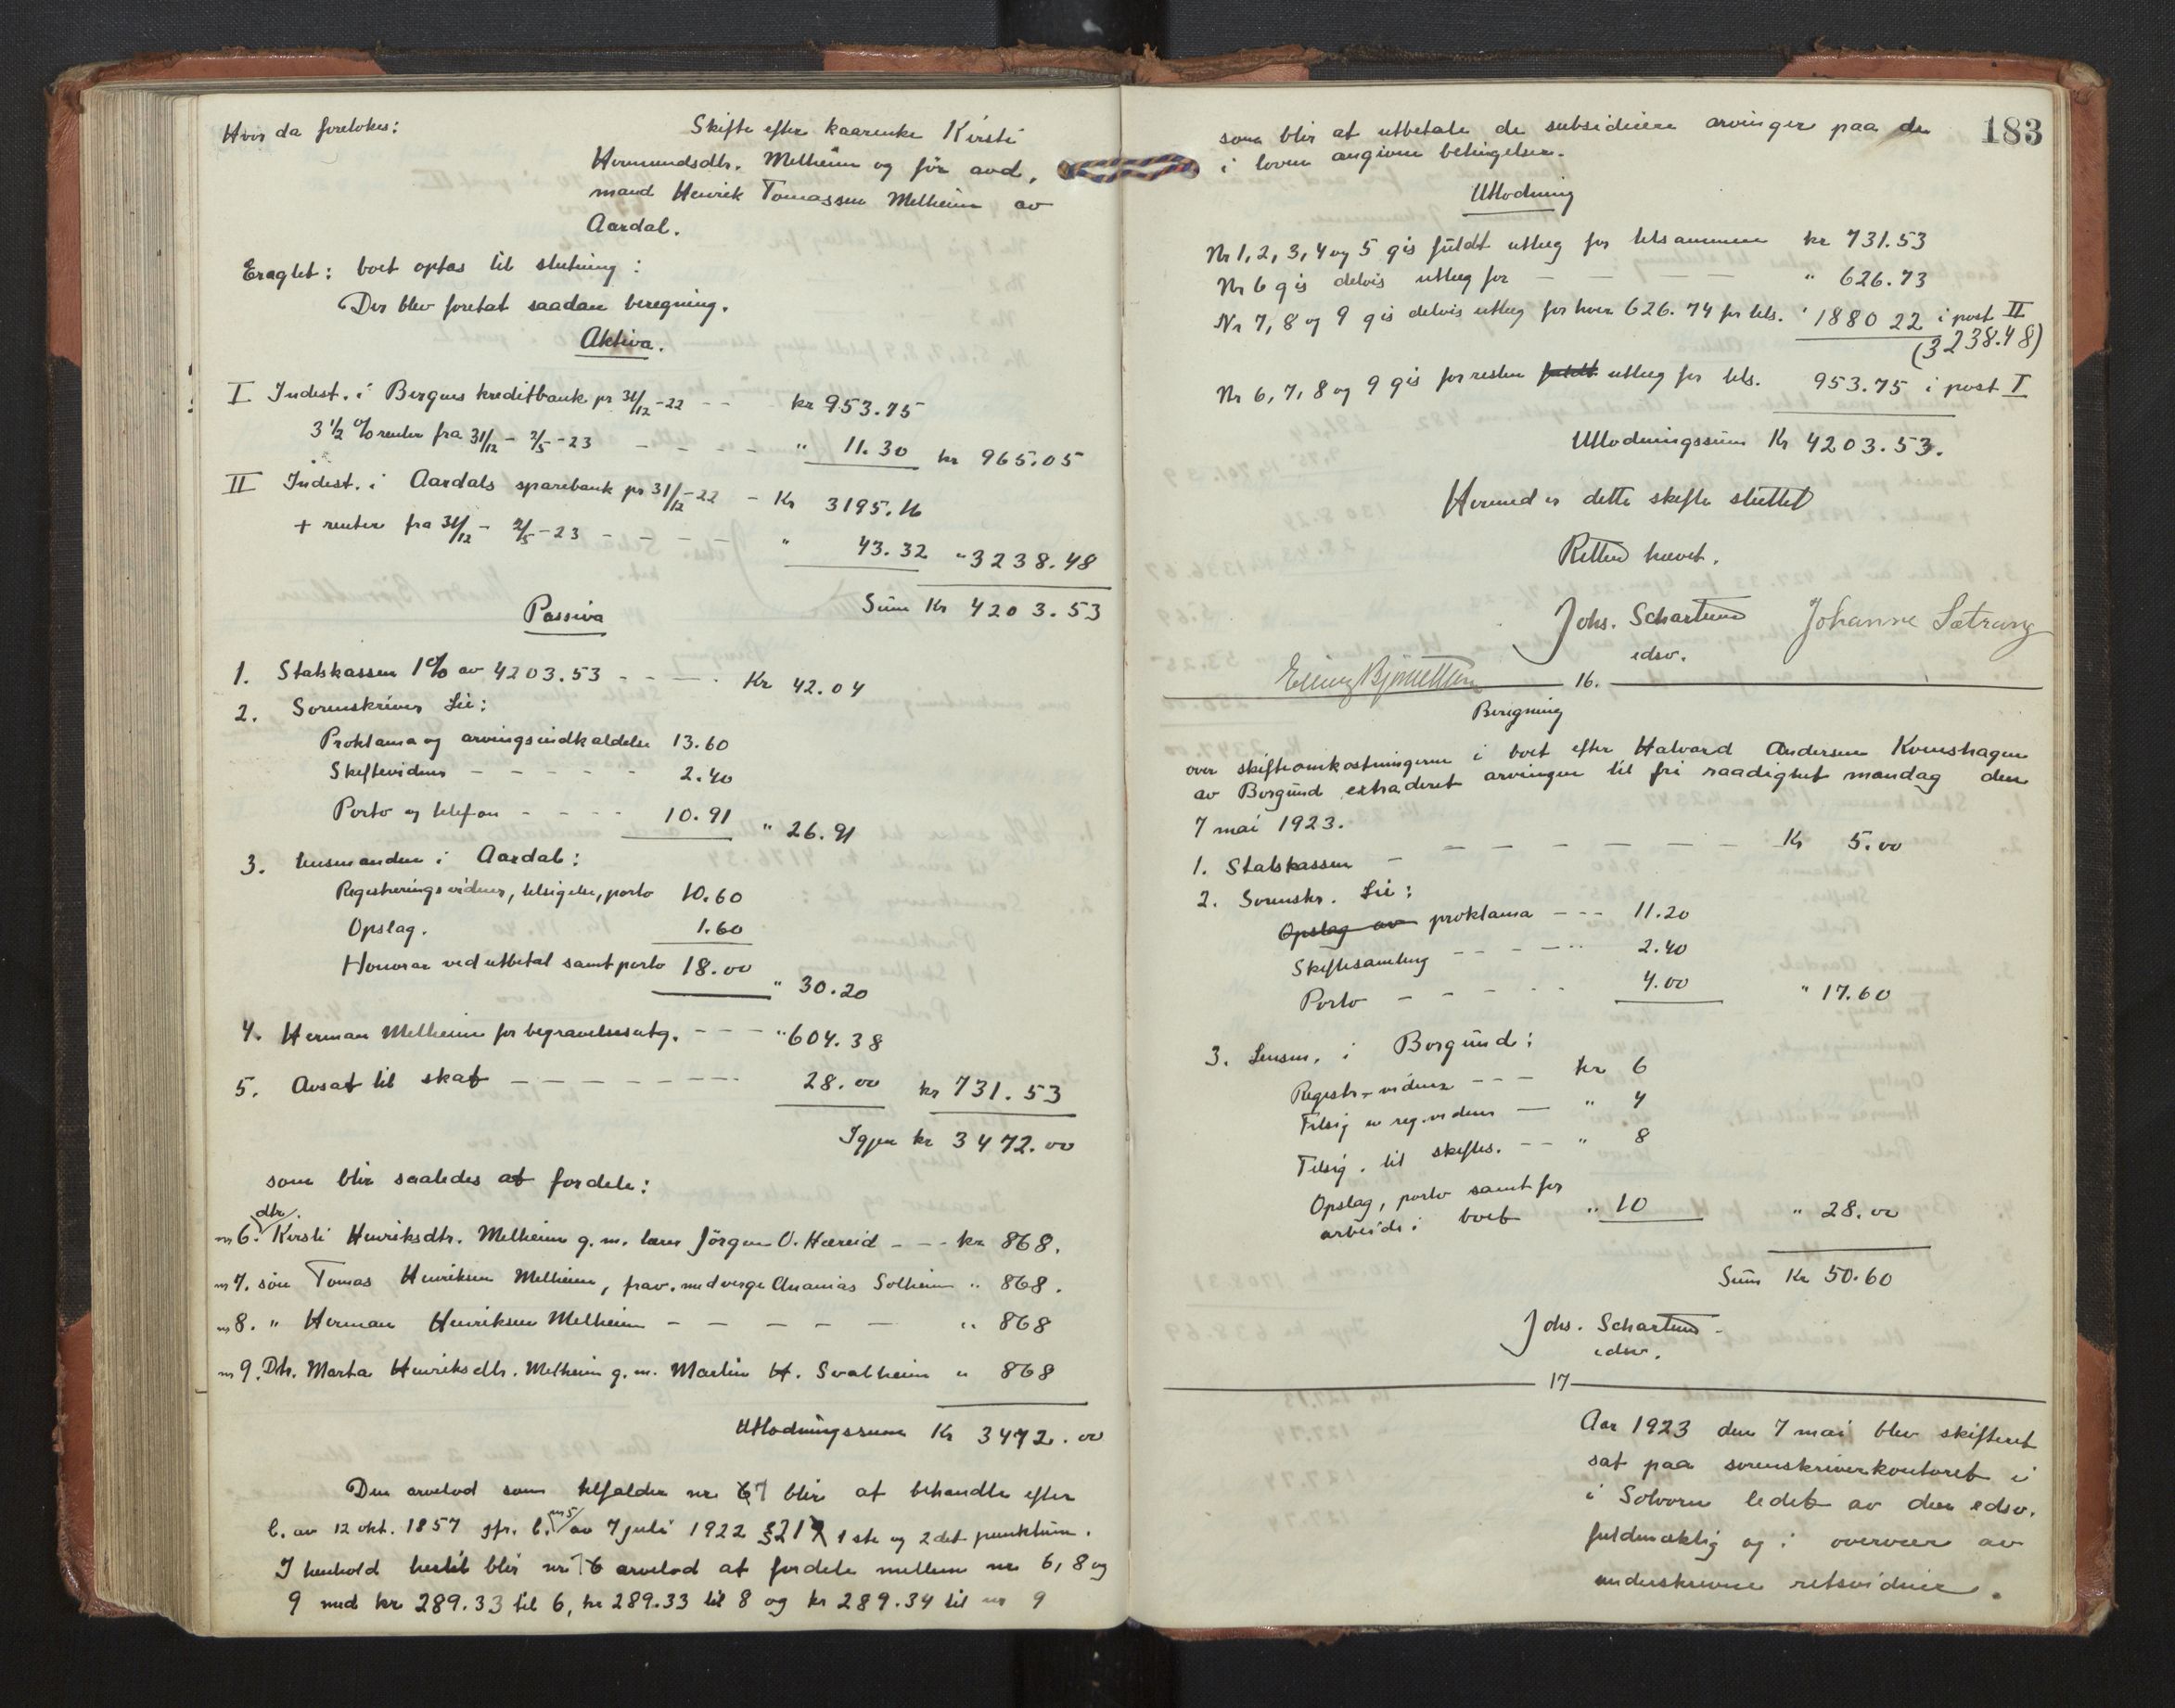 Hvor da foretokes:
Skifte efter kaarenke Kirsti
Hermundsdtr. Melheim og før avd,
mand Henrik Tomassen Melheim av
Aardal.
Eragtet: boet optas til slutning:
Der blev foretat saadan beregning.
Aktiva.
I Indest. i Bergens kreditbank pr 31/12-22 - - kr 953.75
3 1/2 % renter fra 31/12 - 2/5-23 - - - - " 11.30 kr 965.05
II Indest. i Aardals sparebank pr 31/12-22 - Kr 3195.16
+ renter fra 31/12 - 2/5-23 - - - - - " 43.32 " 3238.48
Sum Kr 4203.53
Passiva
1. Statskassen 1% av 4203.53 - - - - Kr 42.04
2. Sorenskriver Lie:
Proklama og arvingsindkaldelse 13.60
Skiftevidner - - - - - 2.40
Porto og telefon - - - - 10.91 " 26.91
3. Lensmanden i Aardal:
Registreringsvidner, tilsigelse, porto 10.60
Opslag. 1.60
Honorar ved utbetal samt porto 18.00 " 30.20
4. Herman Melheim for begravelsesutg. - - - " 604.38
5. Avsat til skat - - - - - - - 28.00 kr 731.53
Igjen kr 3472.00
som blir saaledes at fordele:
dtr.
nr 6. Kirsti Henriksdtr. Melheim g.m. lærer Jörgen O. Hæreid - - - kr 868.
nr 7. søn Tomas Henriksen Melheim, frav. med verge Ananias Solheim " 868.
nr 8. " Herman Henriksen Melheim - - - - - " 868
nr 9. Dtr. Marta Henriksdtr. Melheim g.m. Martin H. Svalheim " 868
Utlodningssum Kr 3472.00
Den arvelod som tilfalder nr 7 blir at behandle efter
l. av 12 okt. 1857 jfr. l. nr 5 av 7 juli 1922 § 21 1ste og 2det punktum.
I henhold hertil blir nr 7 arvelod at fordele mellem nr 6, 8 og
9 med kr 289.33 til 6, kr 289.33 til 8 og kr 289.34 til nr 9
183
som blir at utbetale de subsidiære arvinger paa de
i loven angivne betingelser.
Utlodning
Nr 1, 2, 3, 4 og 5 gis fuldt utlæg for tilsammen kr 731.53
Nr 6 gis delvis utlæg for - - - - " 626.73
Nr 7, 8 og 9 gis delvis utlæg for hver 626.74 pr tils. " 1880 22 i post II
(3238.48)
Nr 6, 7, 8 og 9 gis for resten fuldt utlæg for tils. 953.75 i post I
Utlodningssum Kr 4203.53.
Hermed er dette skifte sluttet
Retten hævet.
Johs. Schartum Johanne Sætrang
edsv.
Elling Bjørnetthun
16.
Beregning
over skifteomkostningerne i boet efter Halvard Andersen Kvenshagen
av Borgund extraderet arvingen til fri raadighet mandag den
7 mai 1923.
1. Statskassen - - - - - - - - Kr 5.00
2. Sorenskr. Lie:
Opslag av proklama - - - 11.20
Skiftesamling - - - - - 2.40
Porto - - - - - 4.00 " 17.60
3. Lensm. i Borgund:
Registr.-vidner - - - kr 6
Tilsig av reg.vidner - " 4
Tilsig. til skiftes. - - " 8
Opslag, porto samt for
arbeide i boet " 10 " 28.00
Sum Kr 50.60
Johs. Schartum
edsv.
17
Aar 1923 den 7 mai blev skifteret
sat paa sorenskriverkontoret i
i Solvorn ledet av den edsv.
fuldmæktig og i overvær av
underskrevne retsvidner.